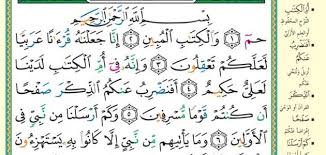 بِسْمِ ٱللَّهِ ٱلرَّحْمَٰنِ ٱلرَّحِيمِ
حمٓ ١ وَٱلْكِتَٰبِ ٱلْمُبِينِ ٢ إِنَّا جَعَلْنَٰهُ قُرْءَٰنًا عَرَبِيًّا
لَّعَلَّكُمْ تَعْقِلُونَ ٣ وَإِنَّهُۥ فِىٓ أُمِّ ٱلْكِتَٰبِ لَدَيْنَا
لَعَلِىٌّ حَكِيمٌ ٤ أَفَنَضْرِبُ عَنكُمُ ٱلذِّكْرَ صَفْحًا
أَن كُنتُمْ قَوْمًا مُّسْرِفِينَ ٥ وَكَمْ أَرْسَلْنَا مِن نَّبِىٍّ فِى
ٱلْأَوَّلِينَ ٦ وَمَا يَأْتِيهِم مِّن نَّبِىٍّ إِلَّا كَانُوا۟ بِهِۦ يَسْتَهْزِءُونَ
أُمِّ الكتاب
اللوح المحفوظ
أفنضرب
صفحًا